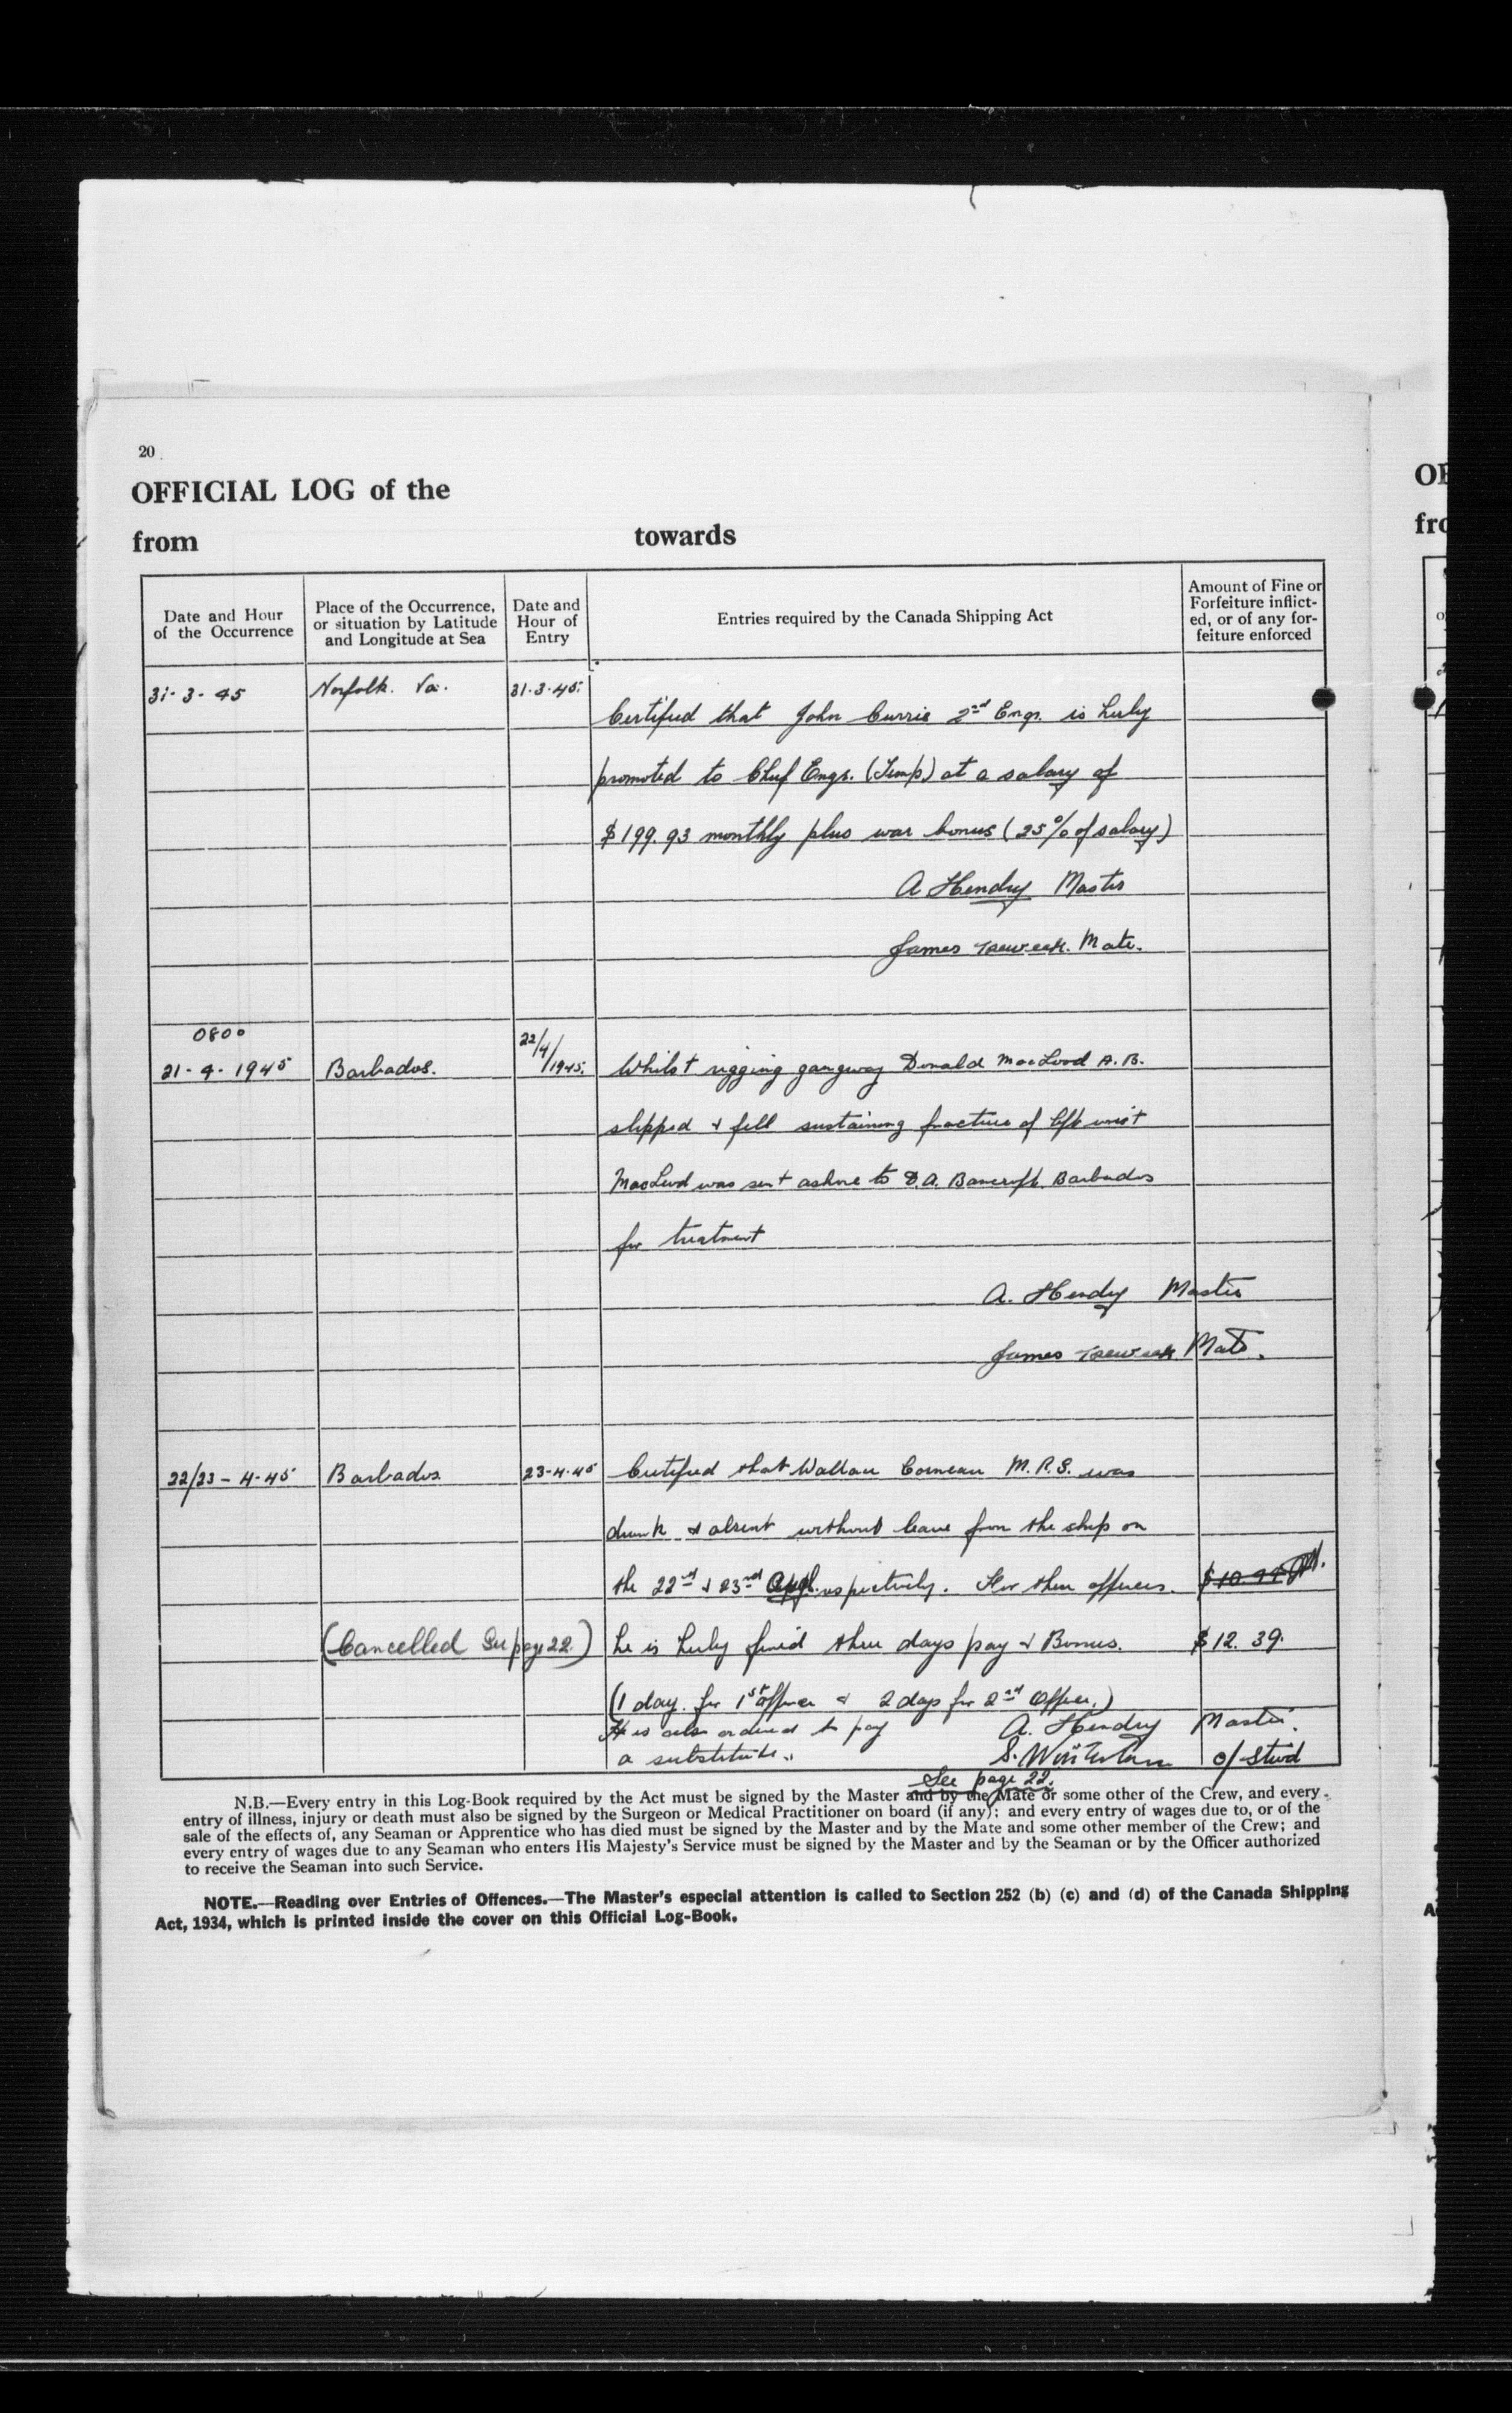 20
OFFICIAL LOG of the
from towards
Date and Hour of the Occurrence
Place of the Occurrence, or situation by Latitude and Longitude at Sea
Date and Hour of Entry
Entries required by the Canada Shipping Act
Amount of Fine or Forfeiture inflicted, or of any forfeiture enforced
31-3-45 Norfolk. Va. 31-3-45.
Certified that John Currie 2nd Engr. is herby
promoted to Chief Engr. (Temp) at a salary of
$199.93 monthly plus war bonus (25% of salary)
A Hendry Master
James Mate.
0800
21-4-1945 Barbados. 22/4/1945. Whilst rigging gangway Donald MacLeod A.B.
slipped & fell sustaining fracture of left wrist
MacLeod was sent ashore to D.A. Bancroft. Barbados
for treatment
A. Hendry Master
James Mate.
22/23-4-45 Barbados. 23-4-45 Certified that Wallace Corneau M.R.S. was
drunk & absent without leave from the ship on
the 22nd & 23rd respectively. For these offences. $10.94
(Cancelled See page 22.) he is herby fined three days pay & Bonus. $12.39.
(1 day for 1st offence & 2 days for 2nd Offence.)
He is also ordered to pay A. Hendry Master.
a substitute. S. c/ Stwd
See page 22.
N.B.—Every entry in this Log-Book required by the Act must be signed by the Master and by the Mate or some other of the Crew, and every
entry of illness, injury or death must also be signed by the Surgeon or Medical Practitioner on board (if any); and every entry of wages due to, or of the
sale of the effects of, any Seaman or Apprentice who has died must be signed by the Master and by the Mate and some other member of the Crew; and
every entry of wages due to any Seaman who enters His Majesty's Service must be signed by the Master and by the Seaman or by the Officer authorized
to receive the Seaman into such Service.
NOTE.—Reading over Entries of Offences.—The Master's especial attention is called to Section 252 (b) (c) and (d) of the Canada Shipping
Act, 1934, which is printed inside the cover on this Official Log-Book.